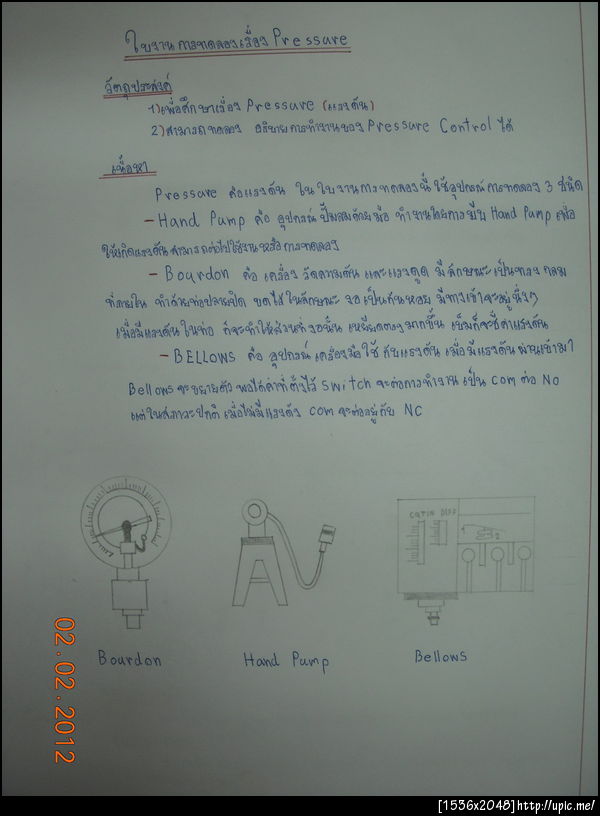 ใบงานการทดลองเรื่อง Pressure
วัตถุประสงค์
1) เพื่อศึกษาเรื่อง Pressure (แรงดัน)
2) สามารถทดลอง อธิบายการทำงานของ Pressure Control ได้
เนื้อหา
Pressure คือแรงดัน ในใบงานการทดลองนี้ ใช้อุปกรณ์การทดลอง 3 ชนิด
- Hand Pump คือ อุปกรณ์ ปั๊มลมด้วยมือ ทำงานโดยการบีบ Hand Pump เพื่อ
ให้เกิดแรงดัน สามารถต่อไปใช้งานหรือการทดลอง
- Bourdon คือ เครื่อง วัดความดัน และแรงดูด มีลักษณะ เป็นทรง กลม
ที่ภายใน ทำด้วยท่อปลายปิด ขดไว้ ในลักษณะ งอ เป็นก้นหอย มีทางเข้าจะอยู่นิ่งๆ
เมื่อมีแรงดัน ในท่อ ก็จะทำให้ส่วนที่งอนั้น เหยียดตรงมากขึ้น เข็มก็จะชี้ค่าแรงดัน
- BELLOWS คือ อุปกรณ์ เครื่องมือใช้ กับแรงดัน เมื่อมีแรงดันผ่านเข้ามา
Bellows จะขยายตัว พอได้ค่าที่ตั้งไว้ Switch จะต่อการทำงาน เป็น com ต่อ NO
แต่ในสภาวะปกติ เมื่อไม่มีแรงดัง com จะต่ออยู่กับ NC
CUTIN DIFF
2
Bourdon
Hand Pump
Bellows
02.02.2012
[1536x2048] http://upic.me/